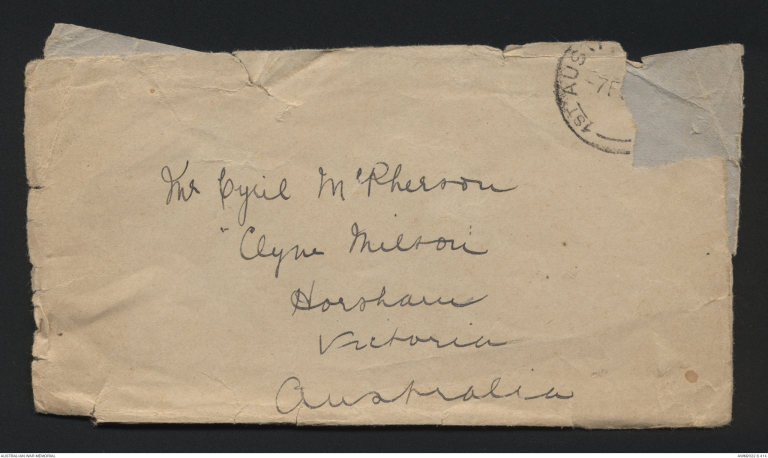 1ST AUS
7 F
Mr Cyril McPherson
"Clyne Milton"
Horsham
Victoria
Australia
AUSTRALIAN WAR MEMORIAL